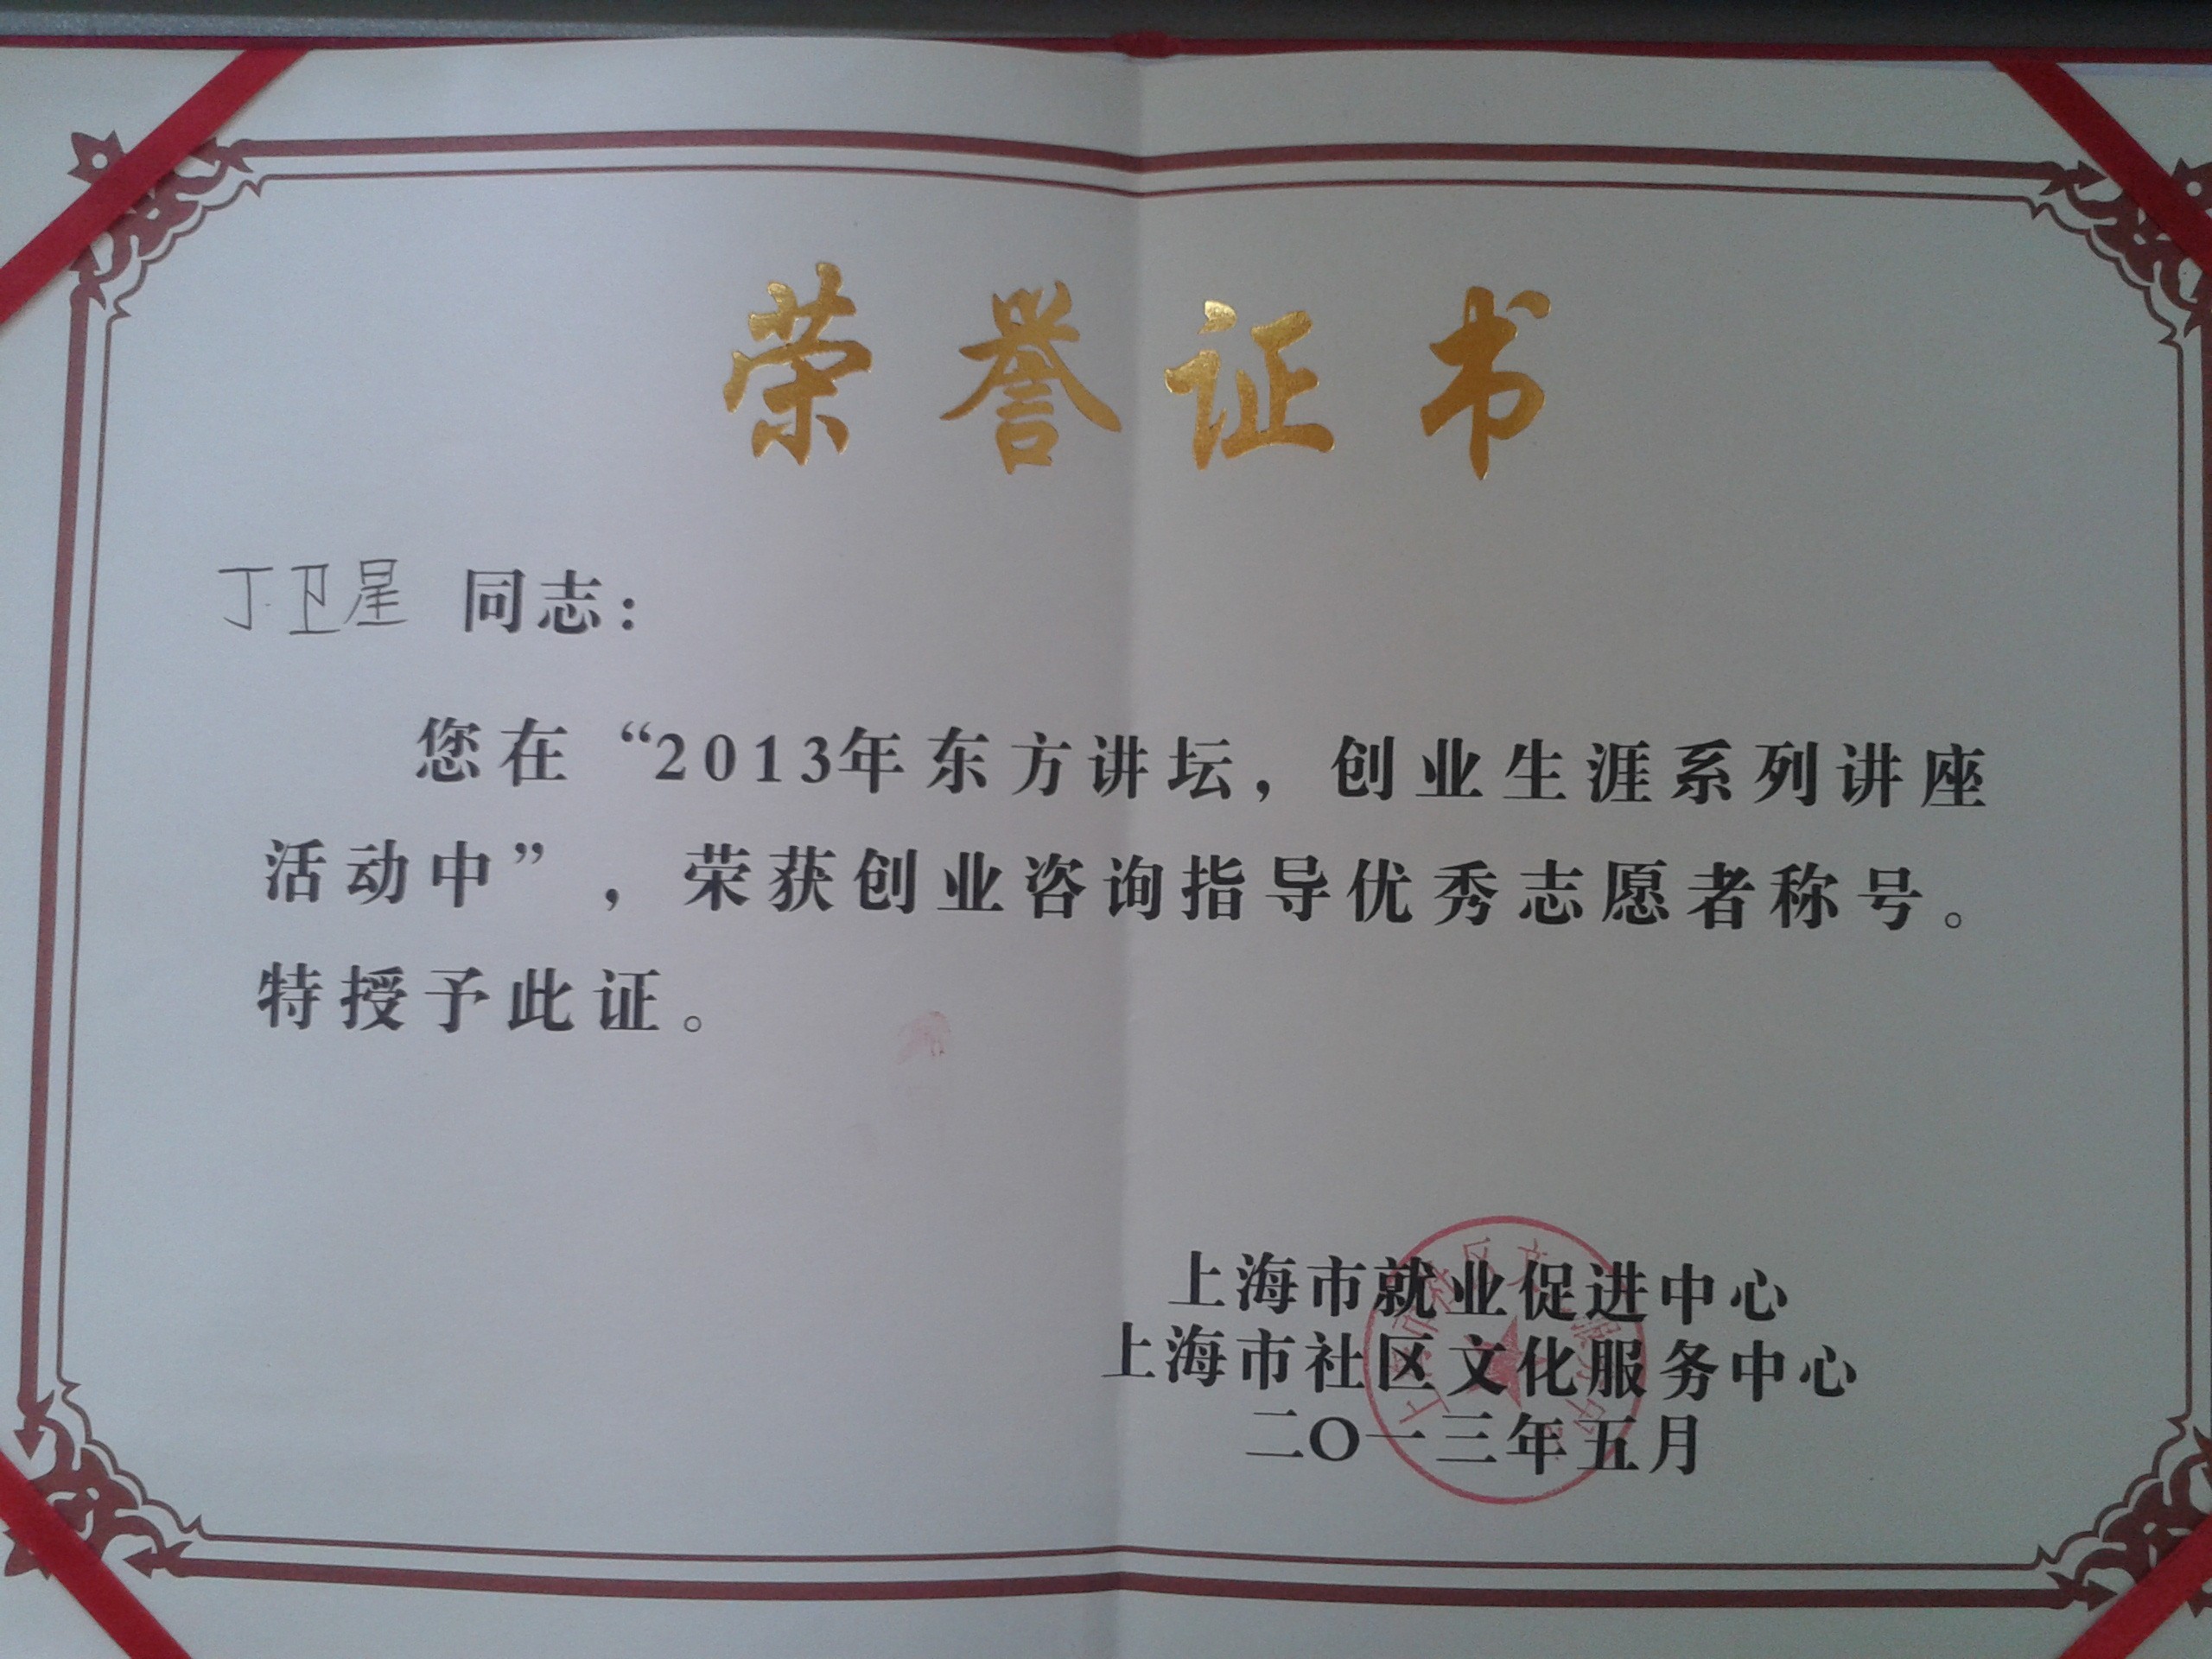 荣誉证书
丁卫星 同志：
您在“2013年东方讲坛，创业生涯系列讲座
活动中”，荣获创业咨询指导优秀志愿者称号。
特授予此证。
上海市就业促进中心
上海市社区文化服务中心
二〇一三年五月